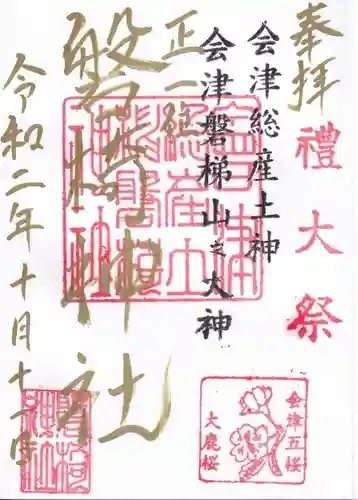 奉拝
禮大祭
会津総産土神
会津磐梯山之大神
正一
磐椅神社
令和二年十月十一日
会津五桜
大鹿桜